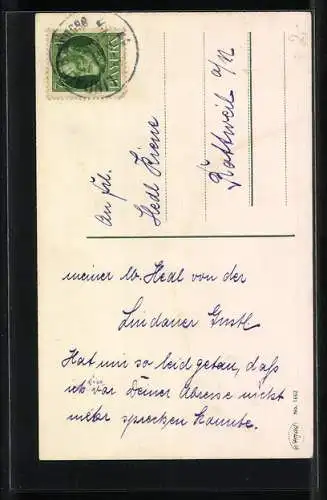 BAYERN
An Frl.
Hedl Kiene
Rottweil a/N
meiner lb. Hedl von der
Lindauer Gustl.
Hat mir so leid getan, daß
ich vor Deiner Abreise nicht
mehr sprechen konnte.
No. 1462